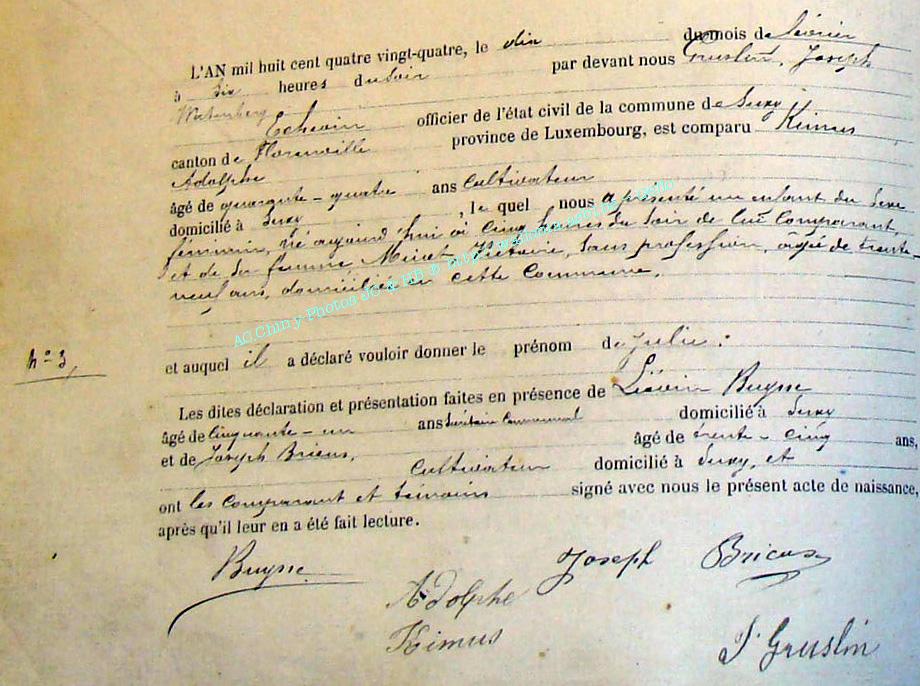 L'AN mil huit cent quatre vingt-quatre, le dix du mois de février
à six heures du soir par devant nous Gruslin, Joseph
Echevin officier de l'état civil de la commune de Suxy
canton de Florenville province de Luxembourg, est comparu Kimus
Adolphe
âgé de quarante-quatre ans Cultivateur
domicilié à Suxy, le quel nous a présenté un enfant du sexe
féminin, né aujourd'hui à cinq heures du soir de lui comparant,
et de sa femme, Minet, Victoire, sans profession, âgée de trente-
neuf ans, domiciliés en cette Commune.
AC Chiny-Photos
n° 3,
et auquel il a déclaré vouloir donner le prénom de Julie:
Les dites déclaration et présentation faites en présence de Liévin Buysse
âgé de cinquante-un ans Secrétaire Communal domicilié à Suxy
et de Joseph Bricus, âgé de trente-cinq ans,
Cultivateur domicilié à Suxy, et
ont les comparant et témoins signé avec nous le présent acte de naissance,
après qu'il leur en a été fait lecture.
Buysse
Joseph Bricus
Adolphe
Kimus
J. Gruslin